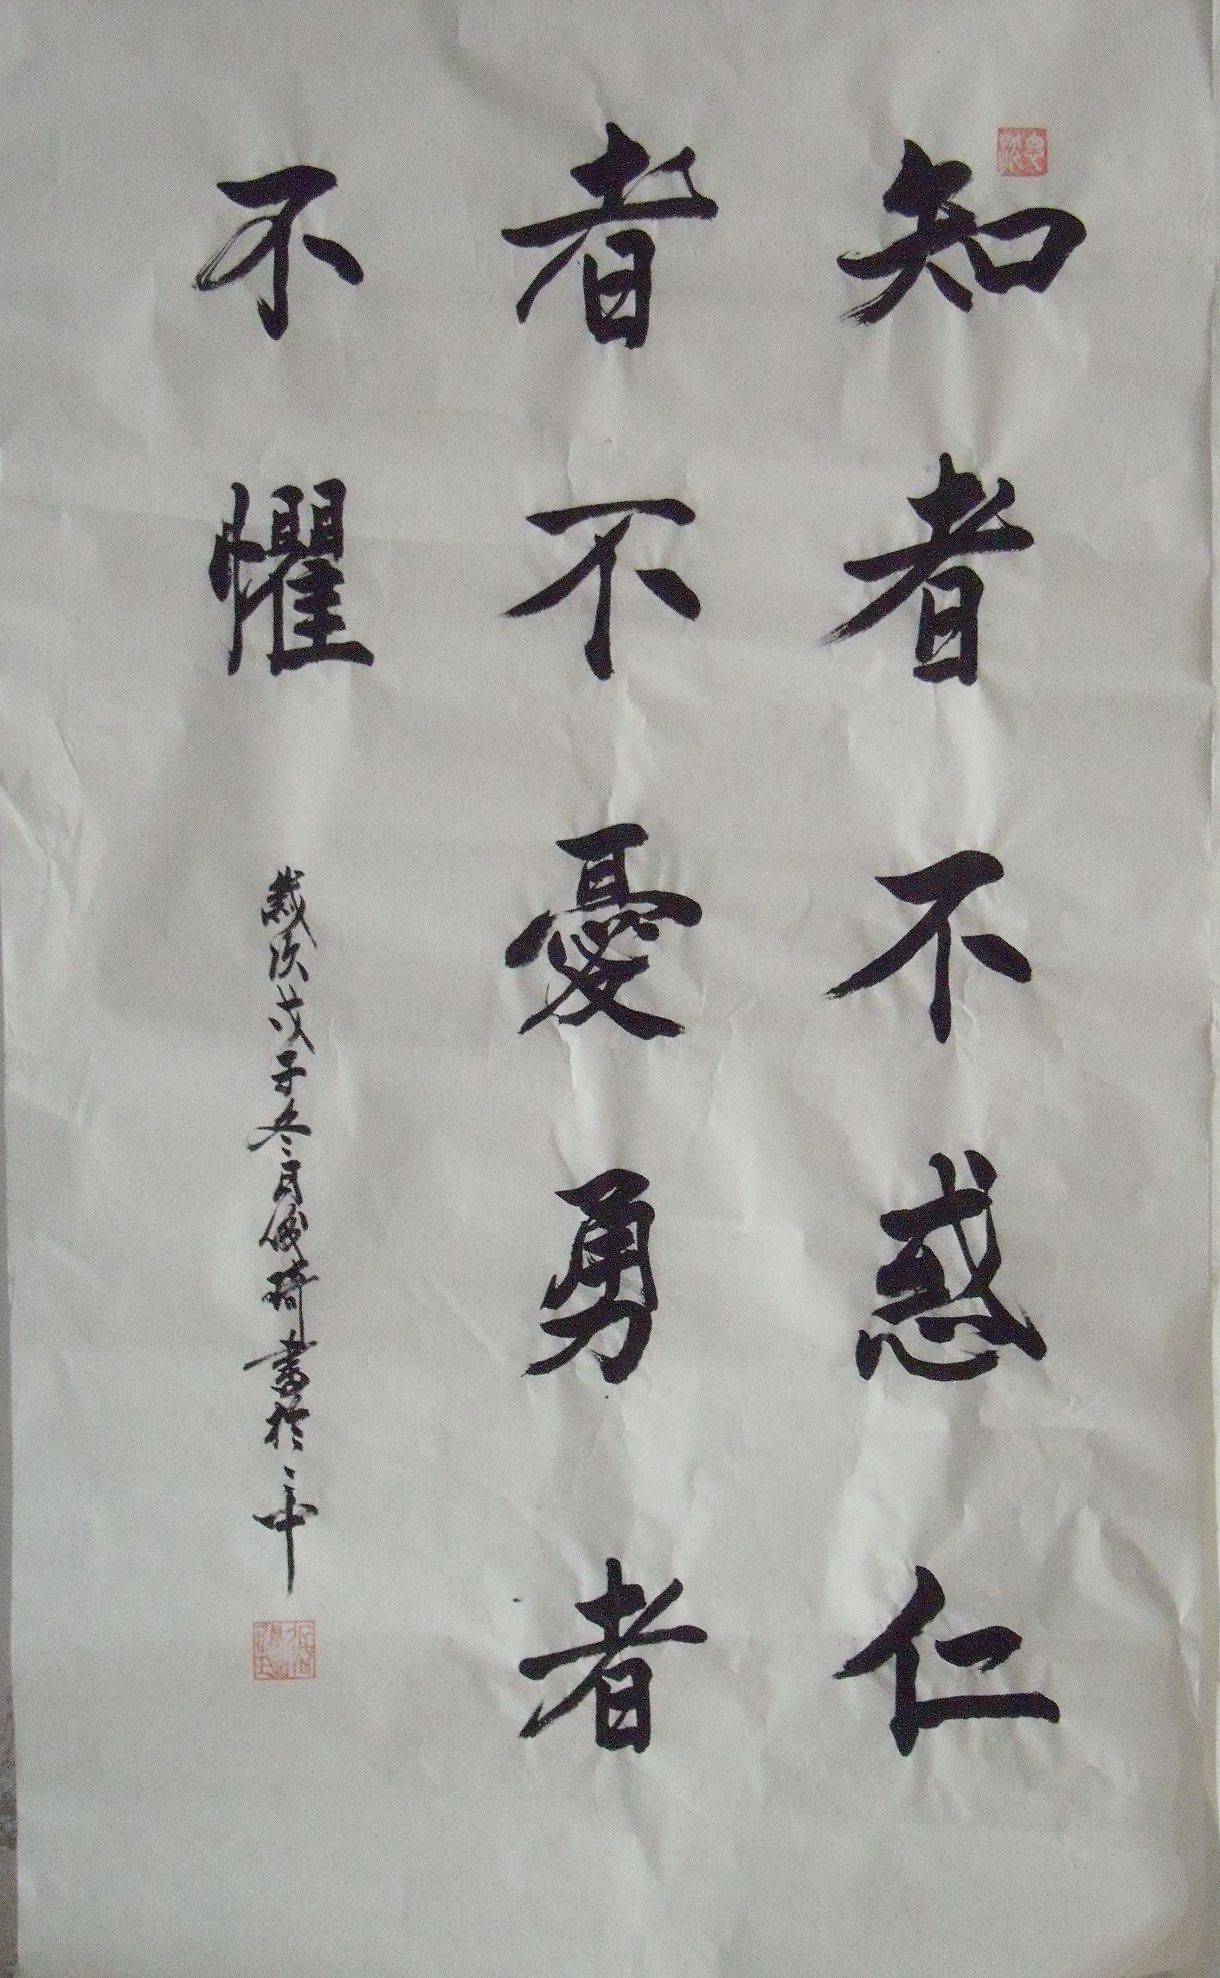 知者不惑仁
者不憂勇者
不懼
歲次戊子冬月俊琦書於二中